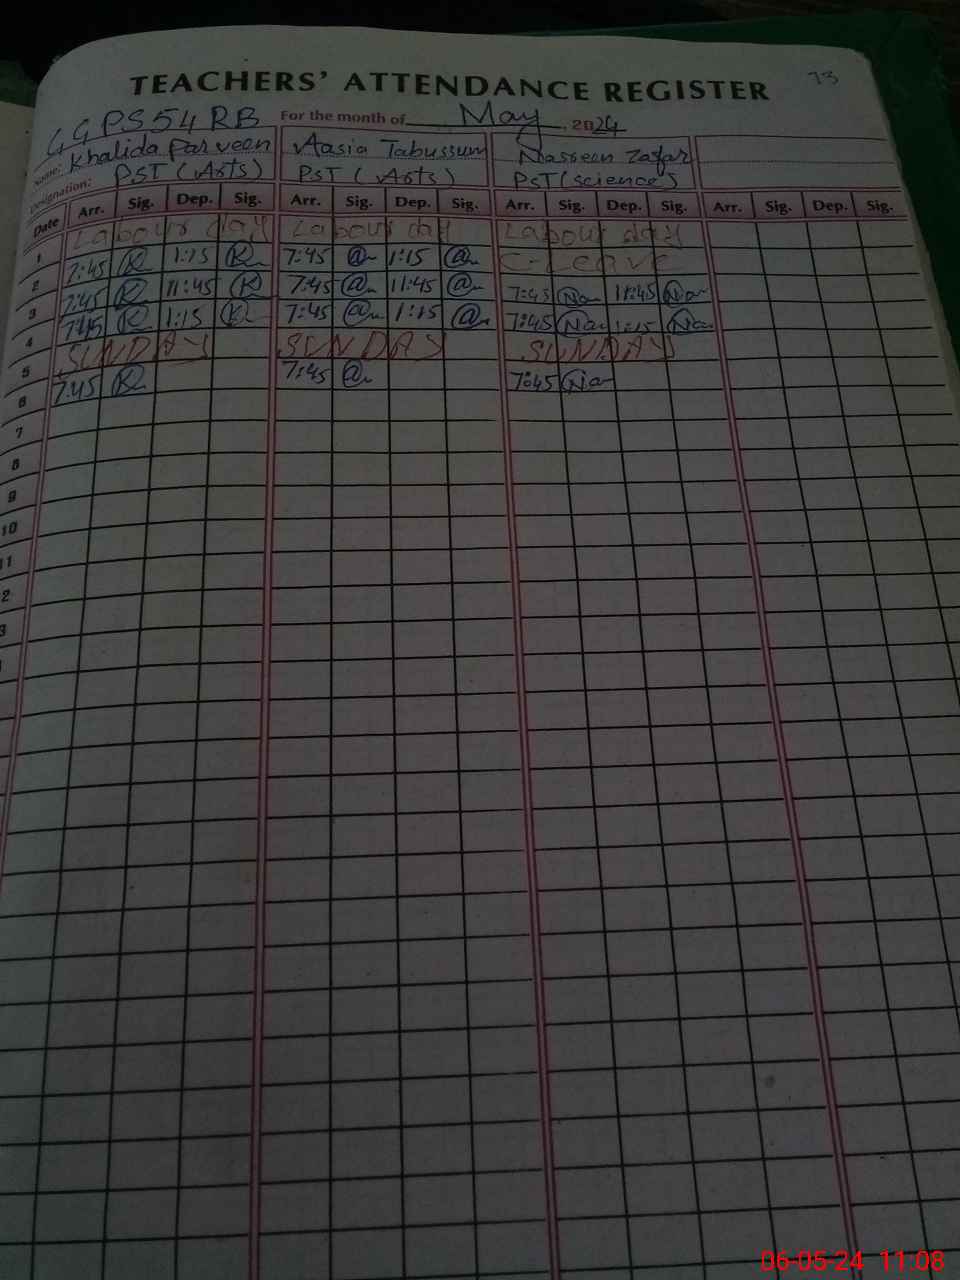 73
TEACHERS' ATTENDANCE REGISTER
GGPS 54 RB For the month of May, 2024
Name: Khalida Parveen Aasia Tabussum Nasreen Zafar
Designation: PST (Arts) PST (Arts) PST (science)
Date Arr. Sig. Dep. Sig. Arr. Sig. Dep. Sig. Arr. Sig. Dep. Sig. Arr. Sig. Dep. Sig.
1 Labour day Labour day Labour day
2 7:45 K 1:15 K 7:45 @ 1:15 @ C-Leave
3 7:45 K 11:45 K 7:45 @ 11:45 @ 7:45 Na 11:45 Na
4 7:45 K 1:15 K 7:45 @ 1:15 @ 7:45 Na 1:15 Na
5 SUNDAY SUNDAY SUNDAY
6 7:45 K 7:45 @ 7:45 Na
7
8
9
10
11
2
3
06-05-24 11:08